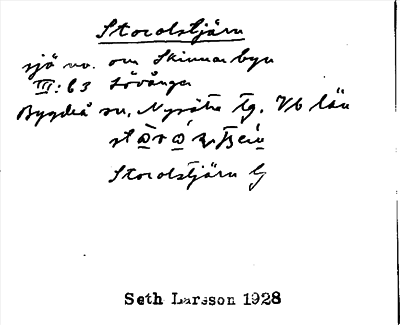 Storolstjärn
sjö nv. om Skinnarbyn
III:63 Lövånger
Bygdeå sn, Nysätra tg. Vb län
Storolstjärn
Seth Larsson 1928